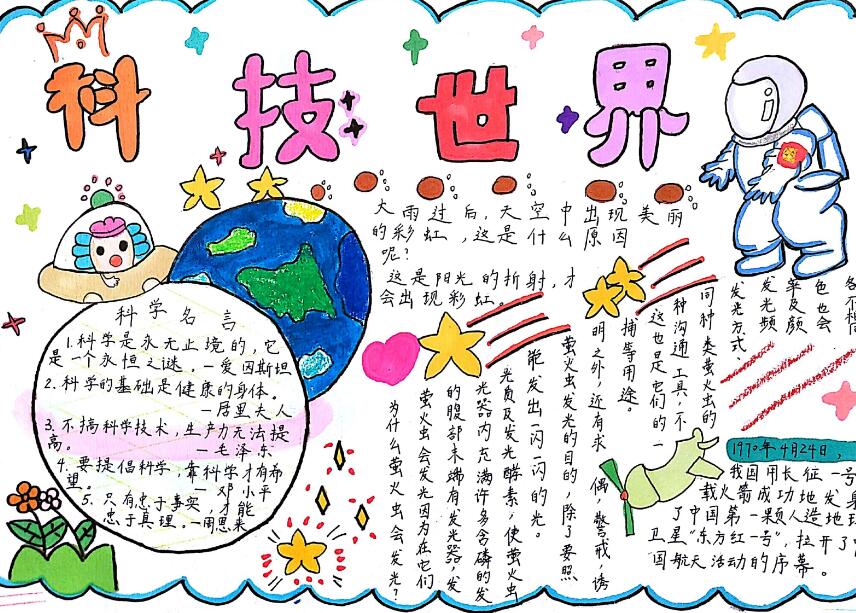 科技世界
大雨过后,天空中出现美丽
的彩虹,这是什么原因
呢?
这是阳光的折射,才
会出现彩虹。
科学名言
1.科学是永无止境的,它
是一个永恒之谜。—爱因斯坦
2.科学的基础是健康的身体。
—居里夫人
3.不搞科学技术,生产力无法提
高。—毛泽东
4.要提倡科学,靠科学才有希
望。—邓小平
5.只有忠于事实,才能
忠于真理。—周恩来
为什么萤火虫会发光?
萤火虫会发光因为在它们
的腹部末端有发光器,发
光器内充满许多含磷的发
光质及发光酵素,使萤火虫
能发出一闪一闪的光。
萤火虫发光的目的,除了要照
明之外,近有求偶,警戒,诱
捕等用途。
这也是它们的一
种沟通工具,不
同种类萤火虫的
发光方式、
发光频
率及颜
色也会
1970年4月24日,
我国用长征一号
载火箭成功地发
了中国第一颗人造地球
卫星"东方红一号",拉开了
国航天活动的序幕。